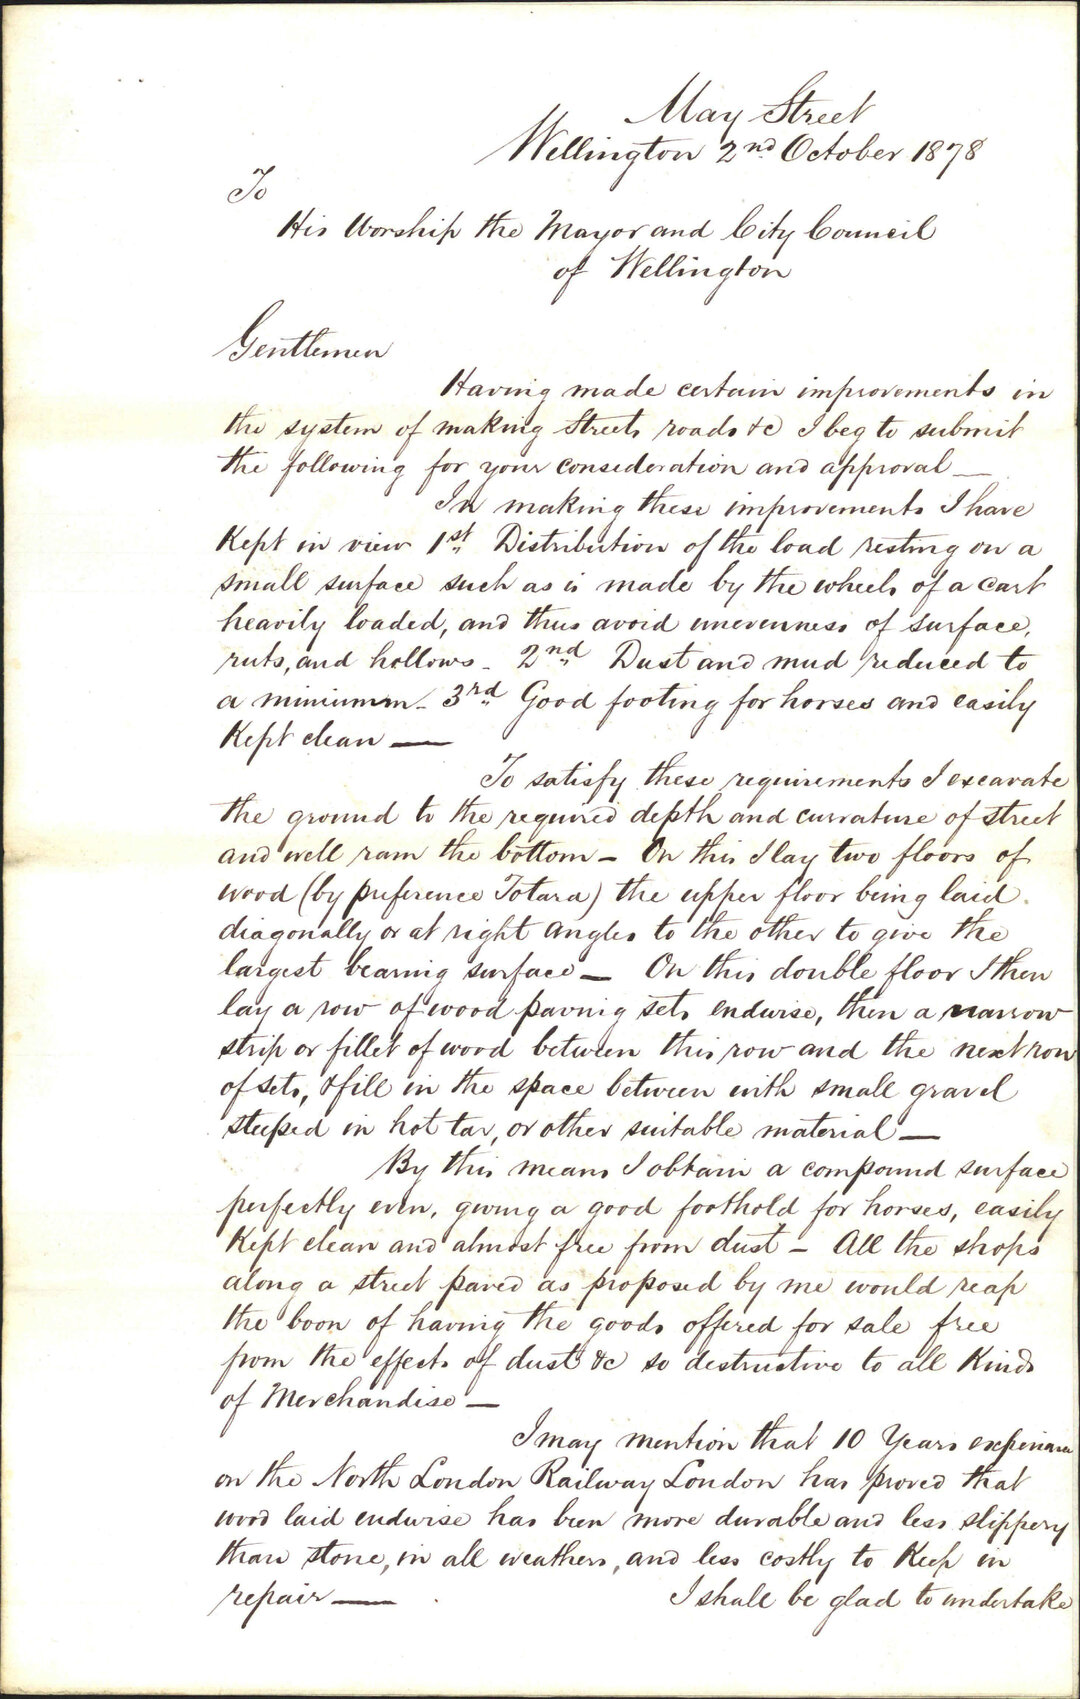 May Street
Wellington 2nd October 1878
To
His Worship the Mayor and City Council
of Wellington
Gentlemen
Having made certain improvements in
the system of making Streets roads &c I beg to submit
the following for your consideration and approval —
In making these improvements I have
Kept in view 1st Distribution of the load resting on a
small surface such as is made by the wheels of a cart
heavily loaded, and thus avoid unevenness of surface,
ruts, and hollows - 2nd Dust and mud reduced to
a minimum - 3rd Good footing for horses and easily
Kept clean —
To satisfy these requirements I excavate
the ground to the required depth and curvature of street
and well ram the bottom - On this I lay two floors of
wood (by preference Totara) the upper floor being laid
diagonally or at right angles to the other to give the
largest bearing surface - On this double floor I then
lay a row of wood paving sets endwise, then a narrow
strip or fillet of wood between this row and the next row
of sets, & fill in the space between with small gravel
steeped in hot tar, or other suitable material —
By this means I obtain a compound surface
perfectly even, giving a good foothold for horses, easily
Kept clean and almost free from dust - All the shops
along a street paved as proposed by me would reap
the boon of having the goods offered for sale free
from the effects of dust &c so destructive to all Kinds
of Merchandise —
I may mention that 10 Years experience
on the North London Railway London has proved that
wood laid endwise has been more durable and less slippery
than stone, in all weathers, and less costly to Keep in
repair — I shall be glad to undertake